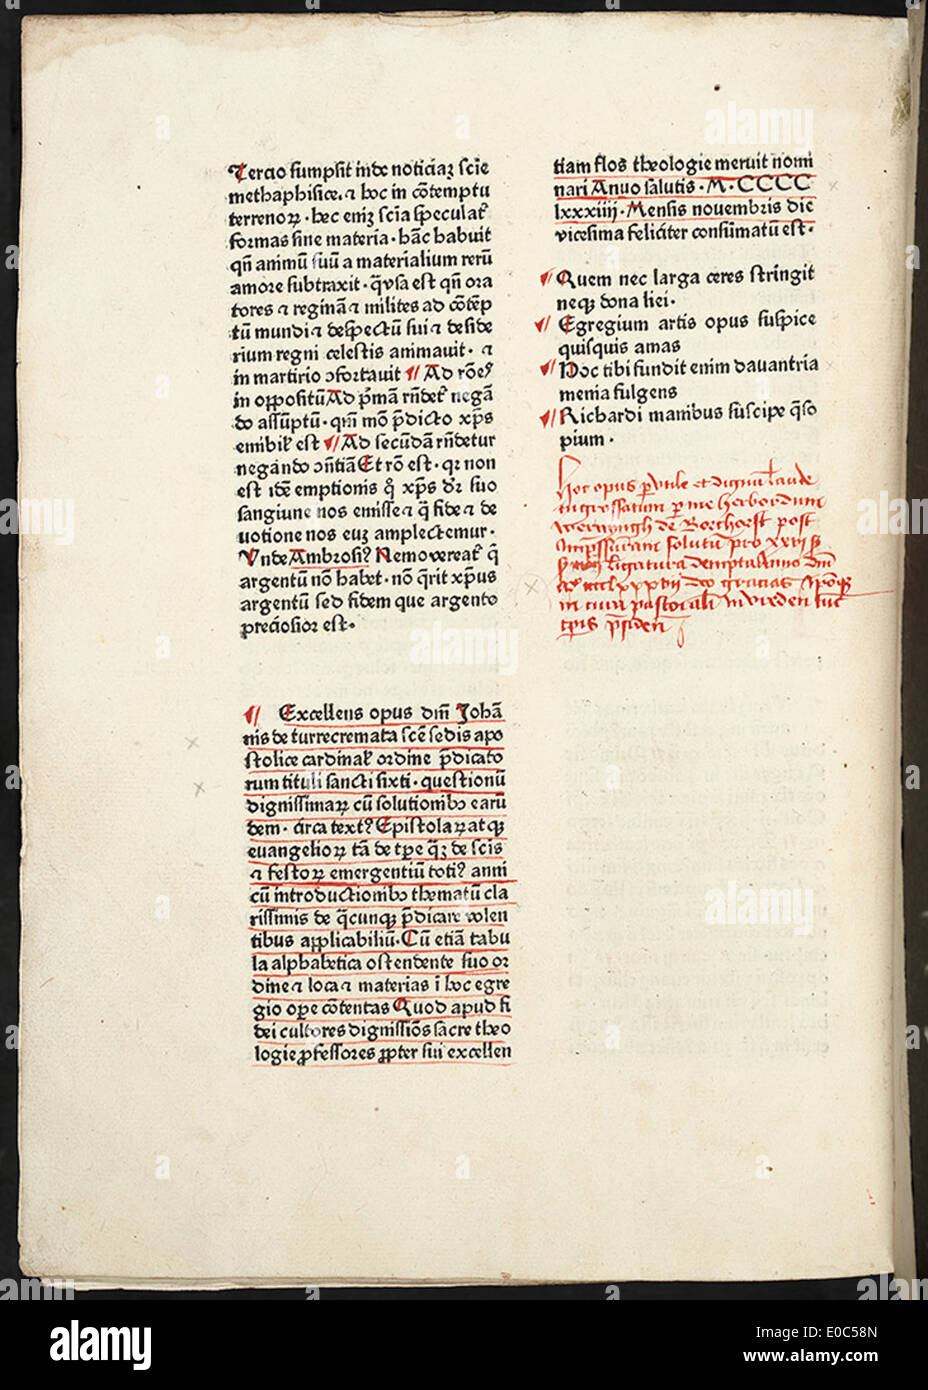 Tercio sumpsit inde noticiaꝫ scīe
methaphisice. ⁊ hoc in cōtemptu
terrenoꝝ · hec eniꝫ scīa speculat᷑
formas sine materia · hāc habuit
qn̄ animū suū a materialium rerū
amore subtraxit · qr̄sa est qn̄ ora
tores ⁊ reginā ⁊ milites ad cōtēp
tū mundi ⁊ despectū sui ⁊ deside
rium regni celestis animauit · ⁊
in martirio ↄfortauit ¶ Ad rōēs
in oppositū Ad pͥmā rn̄det᷑ negā
do assūptū · qm̄ mō p̄dicto xp̄s
emibil᷑ est ¶ Ad secūdā rn̄detur
negando ↄn̄tiā Et rō est · qꝛ non
est idē emptionis qͦ xp̄s dꝛ suo
sanguine nos emisse ⁊ q̄ fide ⁊ de
uotione nos euꝫ amplectemur ·
Unde Ambrosiꝰ Nemo vereat᷑ q̄
argentū nō habet · nō q̄rit xp̄us
argentū sed fidem que argento
preciosior est ·
¶ Excellens opus dn̄i Johā
nis de turrecremata scē sedis apo
stolice cardinal᷑ ordine p̄dicato
rum tituli sancti sixti · questionū
dignissimaꝝ cū solutionibꝰ earū
dem · circa textꝰ Epistolaꝝ atqꝫ
euangelioꝝ tā de tp̄e qꝫ de scis
⁊ festoꝝ emergentiū totiꝰ anni
cū introductionibꝰ thematū cla
rissimis de q̄cunqꝫ p̄dicare volen
tibus applicabiliū · Cū etiā tabu
la alphabetica ostendente suo or
dine ⁊ loca ⁊ materias ī hoc egre
gio ope cōtentas Quod apud fi
dei cultores dignissiōs sacre theo
logie ꝓfessores ꝓpter sui excellen
tiam flos theologie meruit nomi
nari Anno salutis · M · CCCC
lxxxiiii · Mensis nouembris die
vicesima feliciter consūmatū est ·
¶ Quem nec larga ceres stringit
neqꝫ dona liei ·
¶ Egregium artis opus suspice
quisquis amas
¶ Hoc tibi fundit enim dauantria
menia fulgens
¶ Richardi manibus suscipe qͣso
pium ·
Hoc opus ꝑutile et dignū laude
ingrossatum per me herbordum
de Borchorst post
solutum pro xxvii
ligatura dempta Anno dn̄i
deo gracias
in cura pastorali in vreden
alamy
E0C58N
www.alamy.com